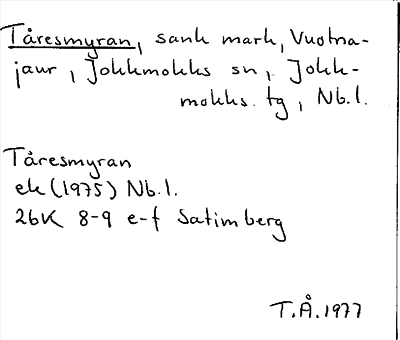 Tåresmyran, sank mark, Vuotna-
jaur, Jokkmokks sn, Jokk-
mokks tg, Nb.l.
Tåresmyran
ek (1975) Nb.l.
26K 8-9 e-f Satimberg
T.Å. 1977